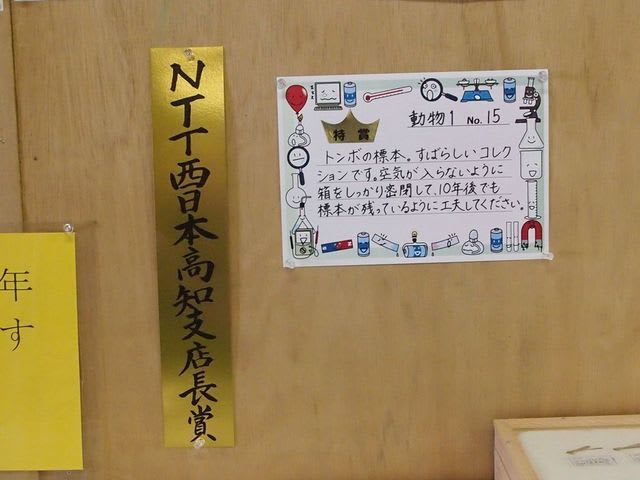 NTT西日本高知支店長賞
特賞
動物1 No.15
トンボの標本。すばらしいコレク
ションです。空気が入らないように
箱をしっかり密閉して、10年後でも
標本が残っているように工夫してください。
年
す